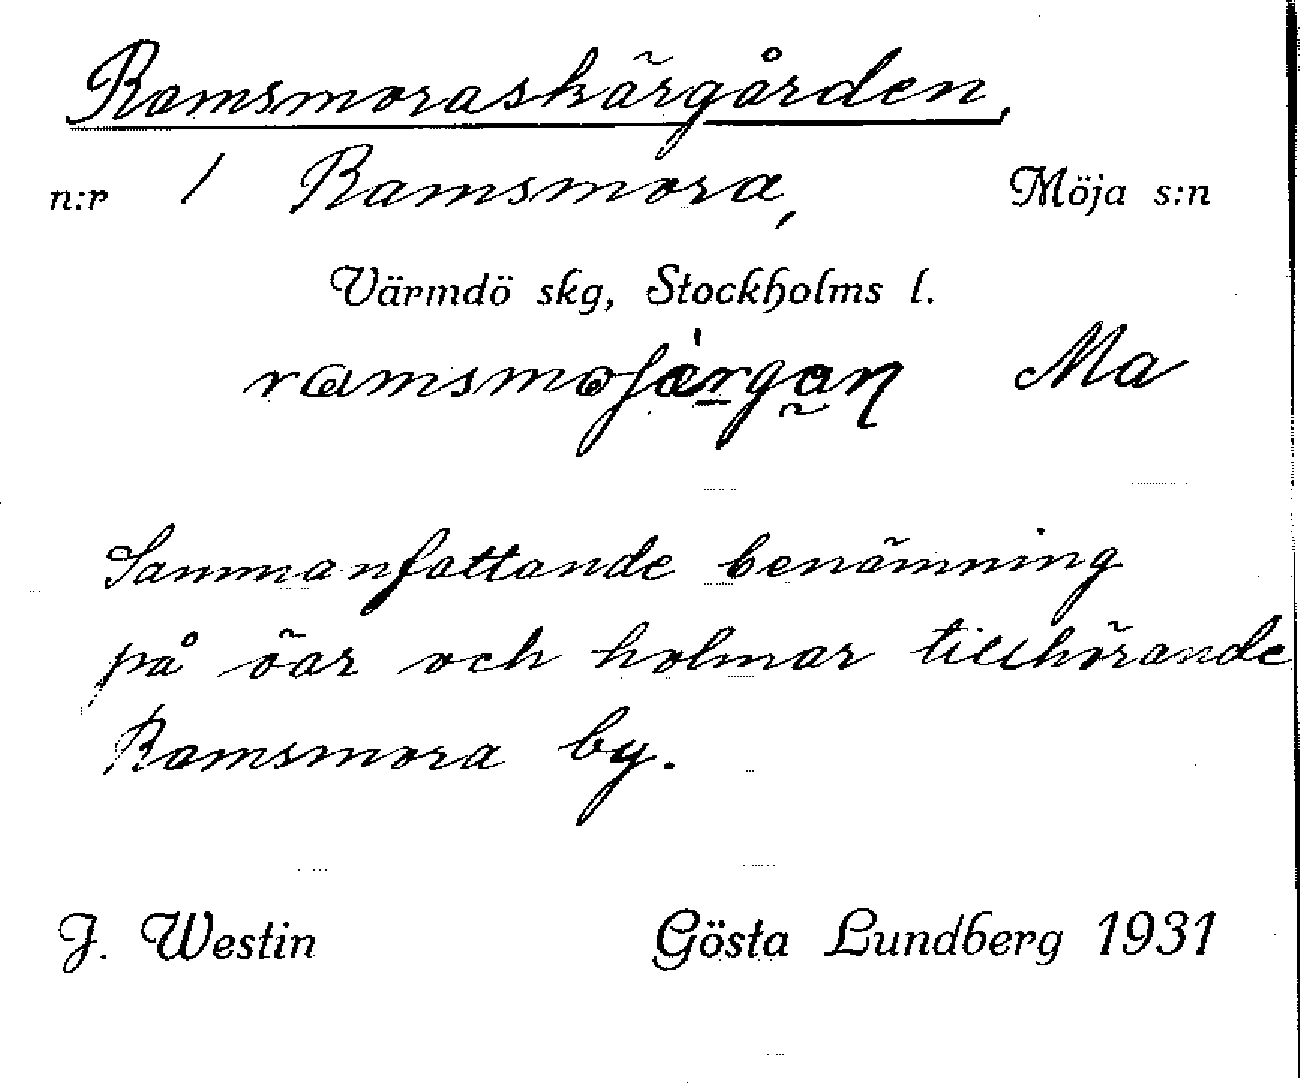 Ramsmoraskärgården,
n:r 1 Ramsmora, Möja s:n
Värmdö skg, Stockholms l.
Ma
Sammanfattande benämning
på öar och holmar tillhörande
Ramsmora by.
J. Westin Gösta Lundberg 1931